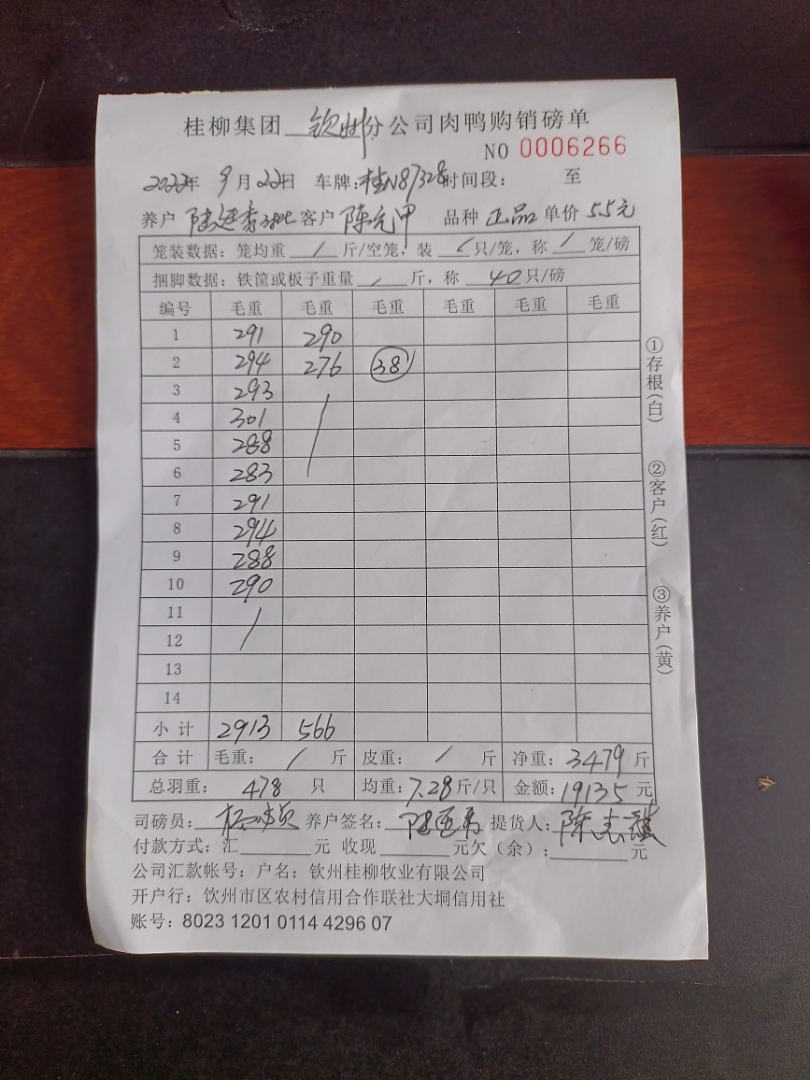 桂柳集团 钦州 分公司肉鸭购销磅单
NO 0006266
2022年 9月22日 车牌:桂N87328 时间段: 至
养户 客户 陈元甲 品种 正品 单价 5.5元
笼装数据: 笼均重 / 斤/空笼, 装 / 只/笼, 称 / 笼/磅
捆脚数据: 铁筐或板子重量 / 斤, 称 40只/磅
编号 毛重 毛重 毛重 毛重 毛重 毛重
1 291 290
2 294 276 38
3 293 /
4 301
5 288
6 283
7 291
8 294
9 288
10 290
11 /
12
13
14
小计 2913 566
合计 毛重: / 斤 皮重: / 斤 净重: 3479 斤
总羽重: 478 只 均重: 7.28斤/只 金额: 19135 元
司磅员: 养户签名: 提货人: 陈志
付款方式: 汇 元 收现 元欠(余): 元
公司汇款帐号: 户名: 钦州桂柳牧业有限公司
开户行: 钦州市区农村信用合作联社大垌信用社
账号: 8023 1201 0114 4296 07
①存根(白)
②客户(红)
③养户(黄)